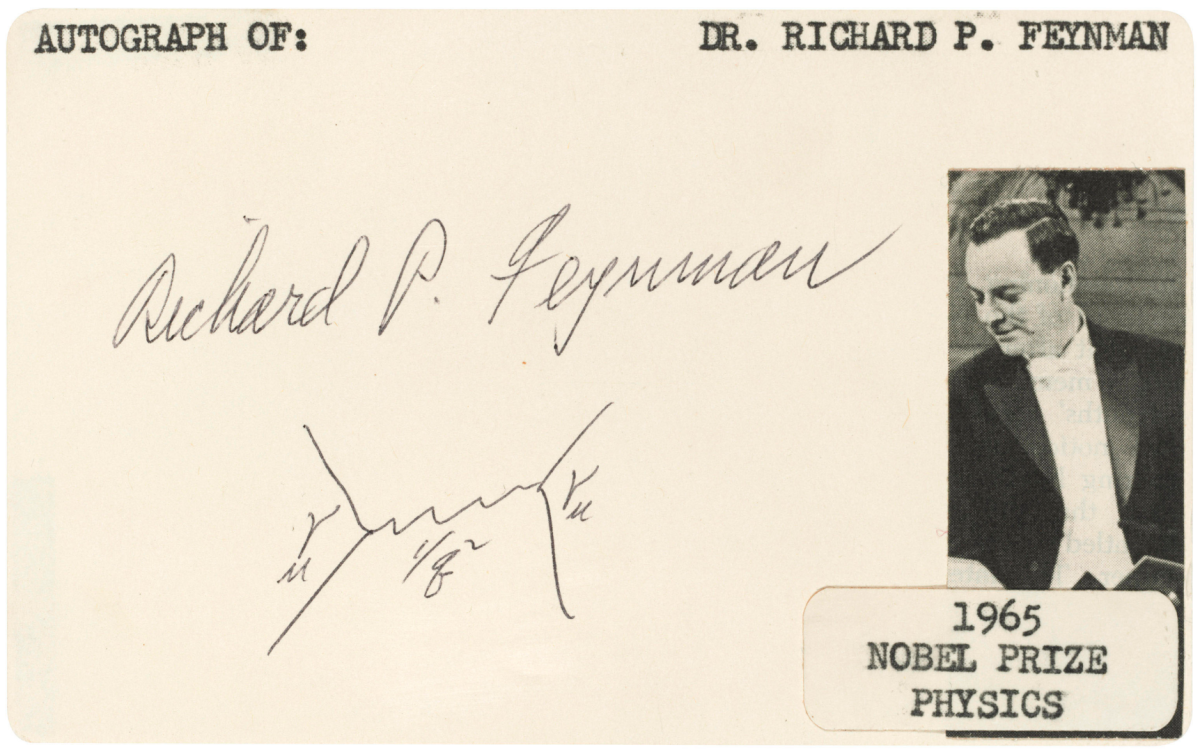 AUTOGRAPH OF: DR. RICHARD P. FEYNMAN
Richard P. Feynman
γμ 1/q² γμ
1965
NOBEL PRIZE
PHYSICS